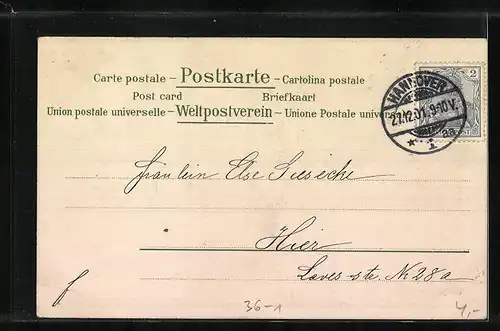 Carte postale – Postkarte – Cartolina postale
Post card Briefkaart
Union postale universelle – Weltpostverein – Unione Postale univers
2
HANNOVER
27.12.01. 9-10V.
* 1 a.
Fräulein Else
Hier
Laves-str. No 28a
f
36-1
4,-